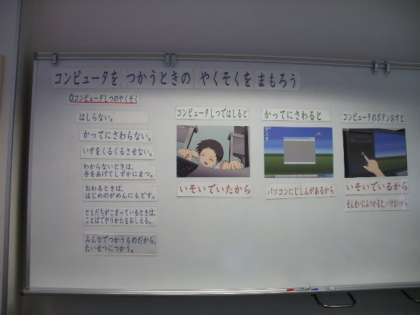 コンピュータを つかうときの やくそくを まもろう
コンピュータしつのやくそく
はしらない。
かってにさわらない。
いすをくるくるさせない。
わからないときは、
手をあげてしずかにまつ。
おわるときは、
はじめのがめんにもどす。
ともだちがこまっているときは、
ことばでやりかたをおしえる。
みんなでつかうものだから、
たいせつにつかう。
コンピュータしつではしると
いそいでいたから
かってにさわると
パソコンにじしんがあるから
コンピュータのボタンおすと
いそいでいるから